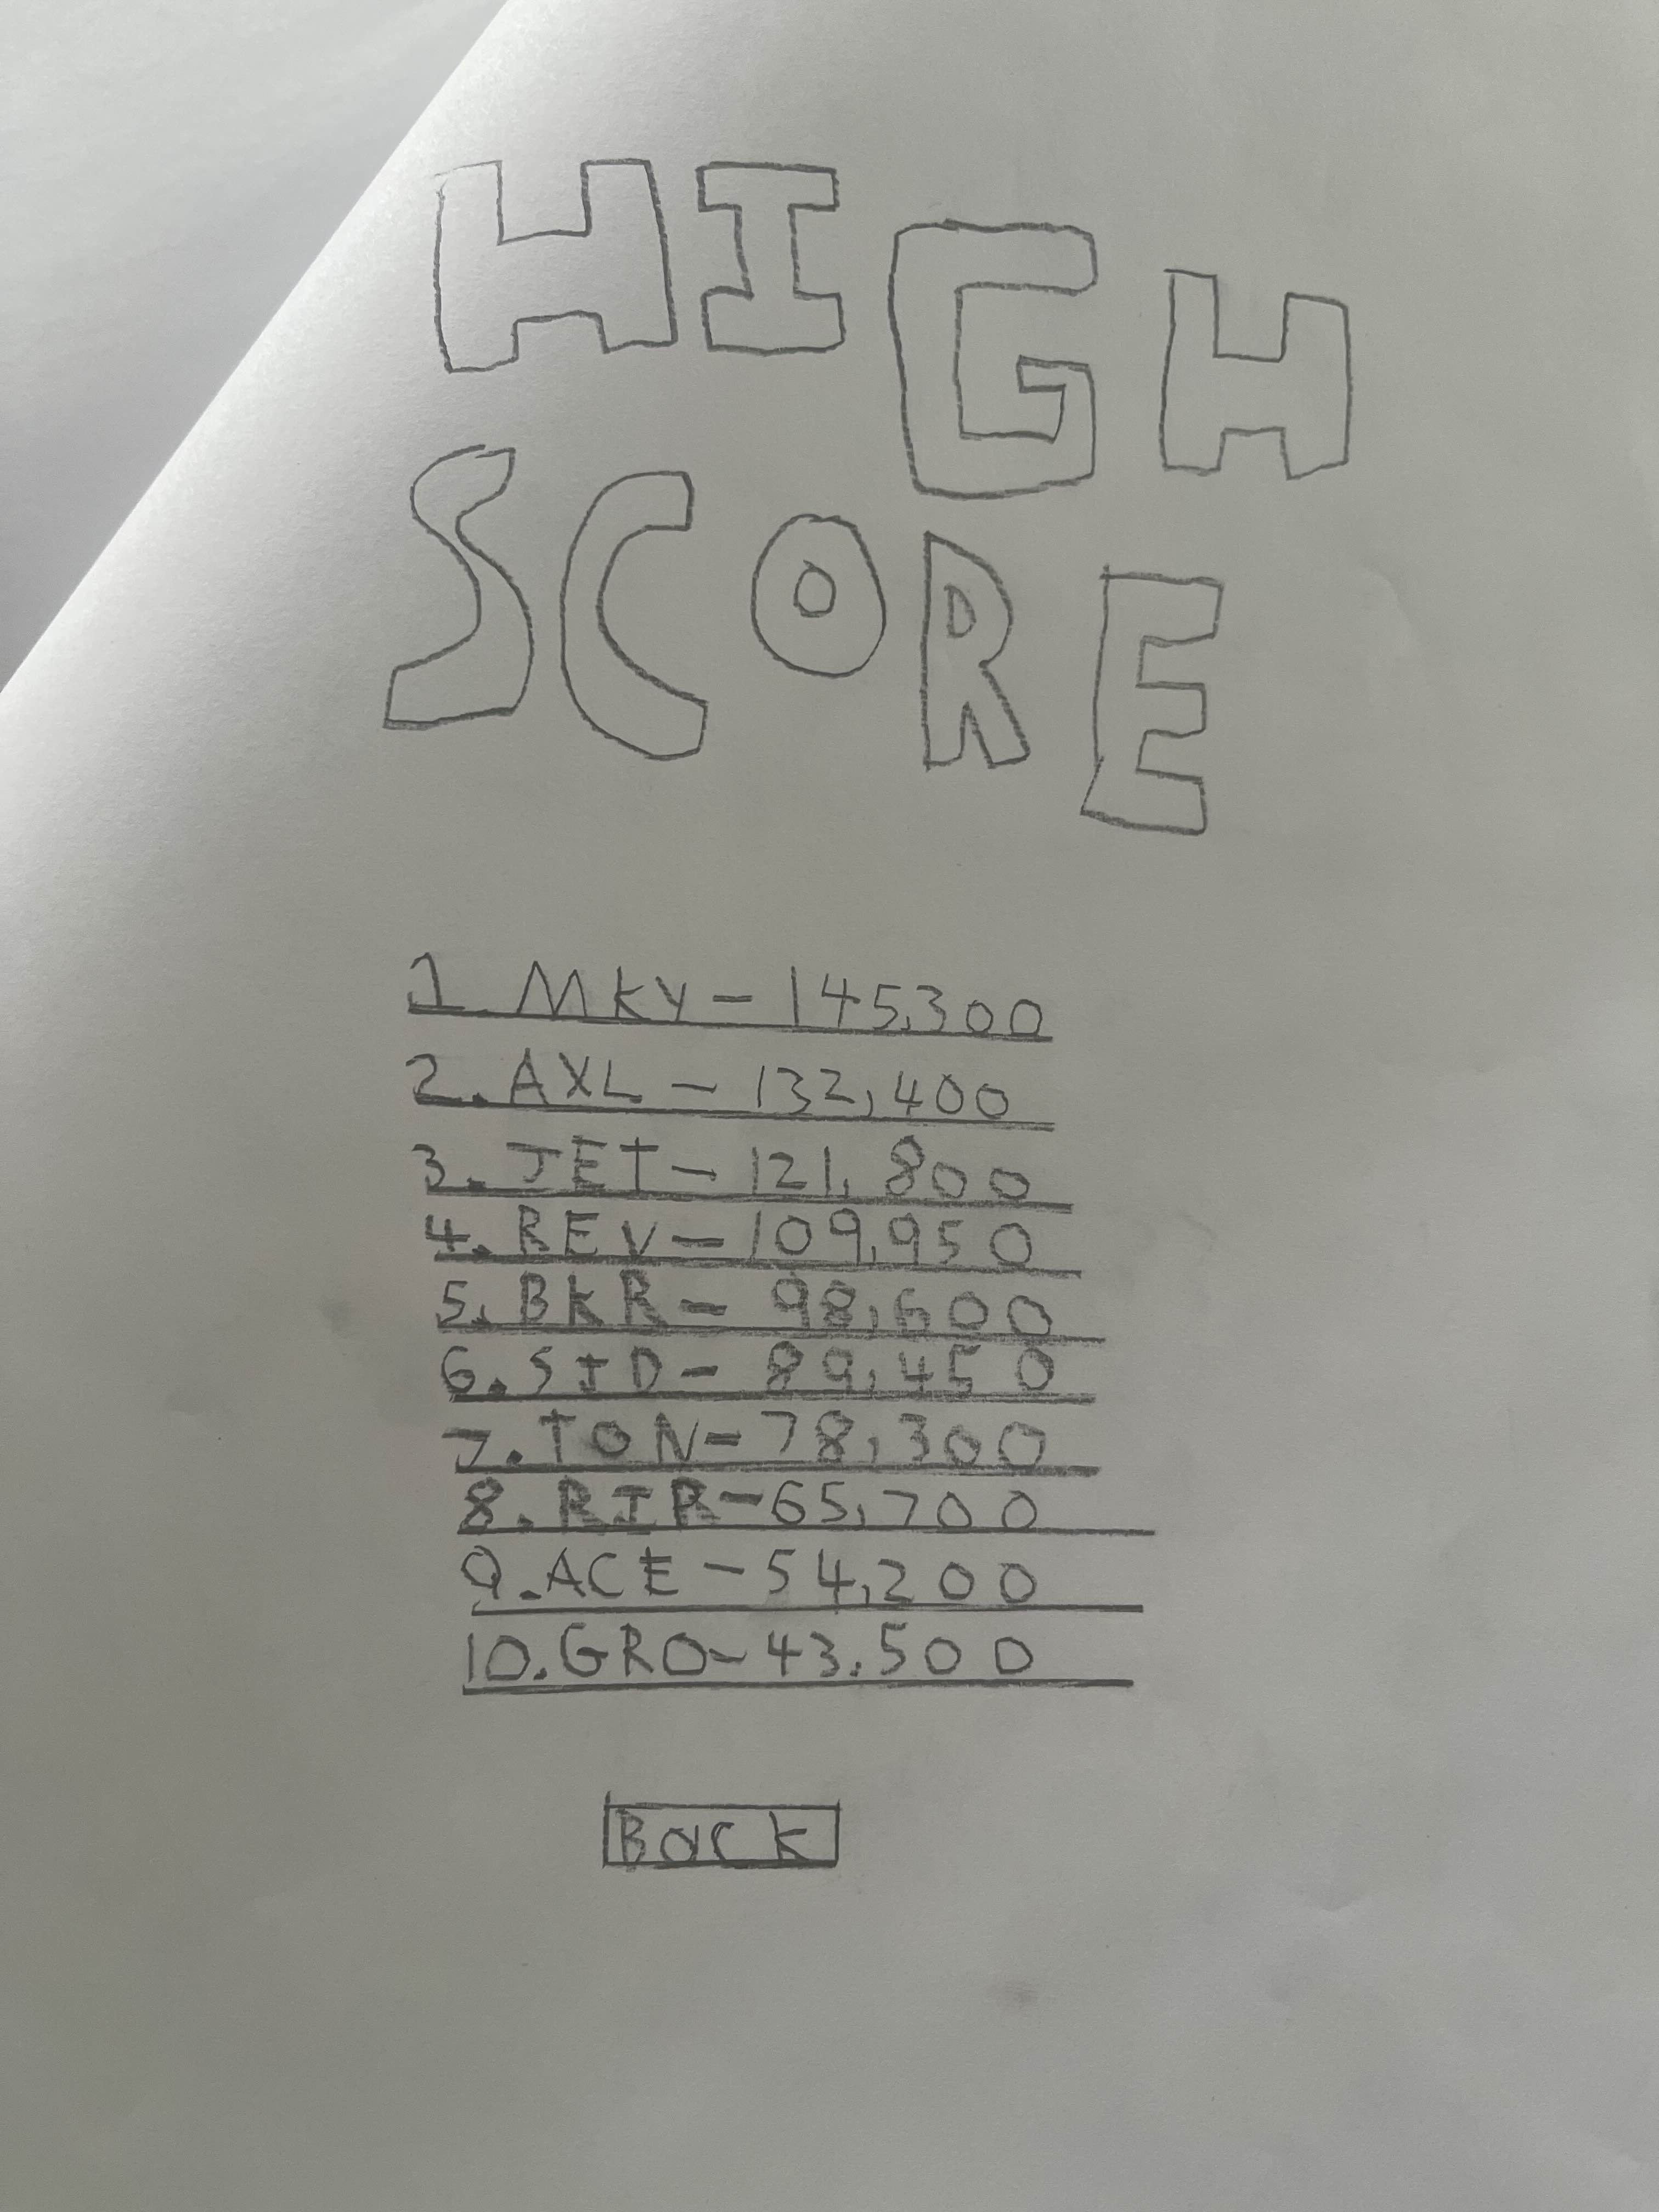 HIGH
SCORE
1. MKY - 145,300
2. AXL - 132,400
3. JET - 121,800
4. REV - 109,950
5. BKR - 98,600
6. SID - 89,450
7. TON - 78,300
8. RIR - 65,700
9. ACE - 54,200
10. GRO - 43.500
Back